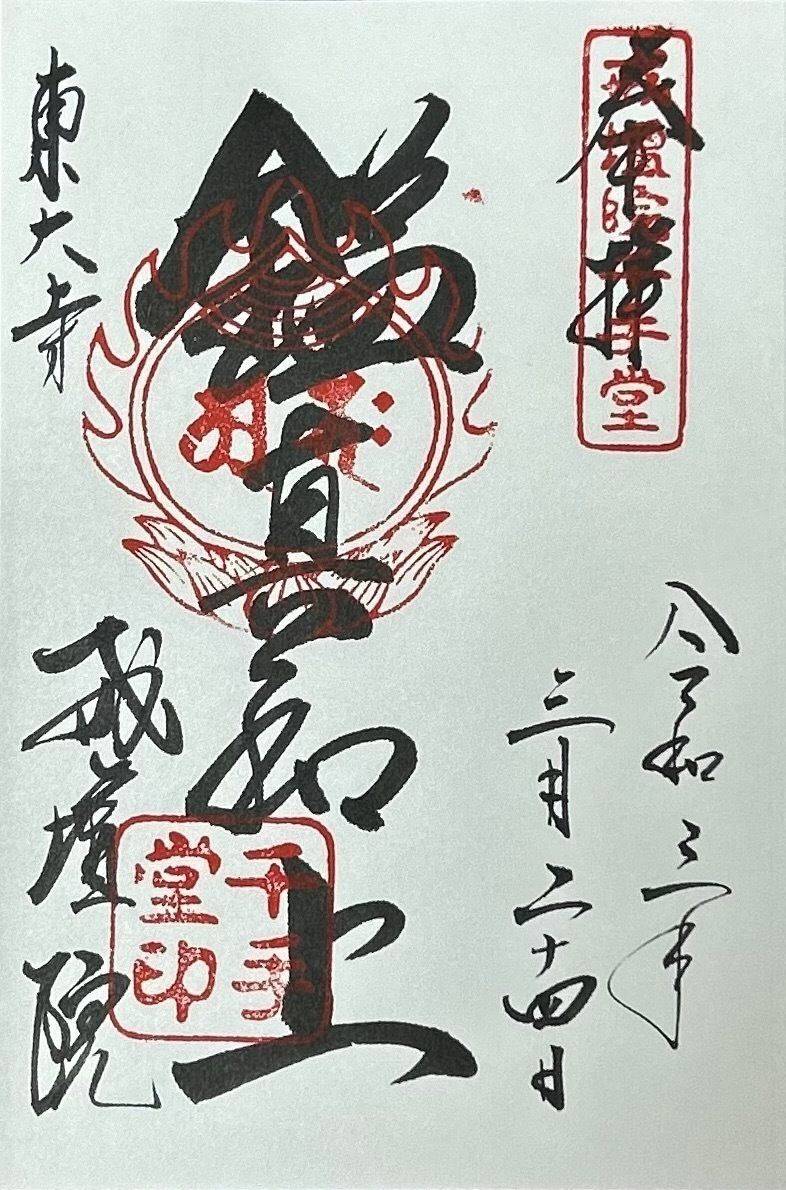 奉拝
戒壇院千手堂
令和三年
三月二十四日
鑑真和上
千手堂印
東大寺
戒壇院